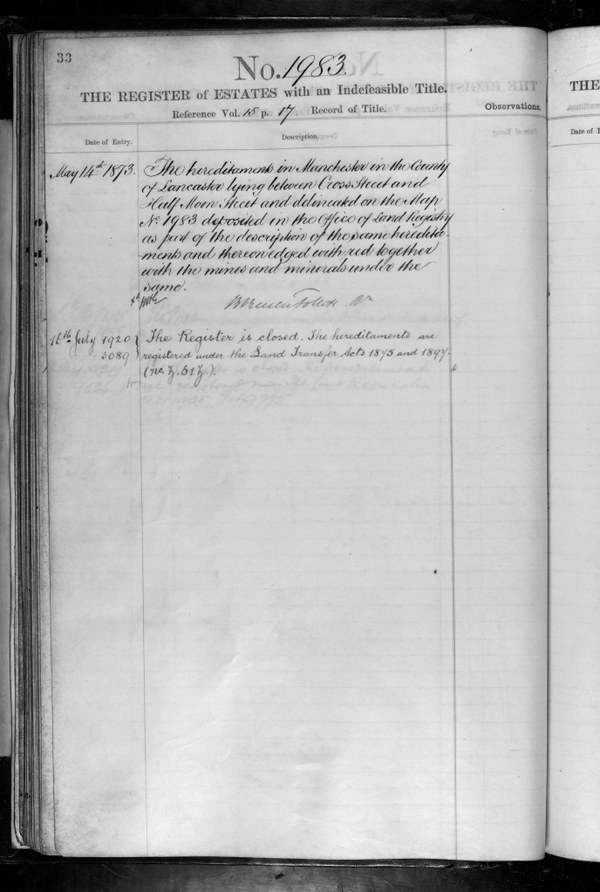 33
No. 1983.
THE REGISTER of ESTATES with an Indefeasible Title.
Reference Vol. 18 p. 17 Record of Title.
Observations.
Date of Entry.
Description.
May 14th 1873.
The hereditaments in Manchester in the County
of Lancaster lying between Cross Street and
Half Moon Street and delineated on the Map
No 1983 deposited in the Office of Land Registry
as part of the description of the same heredita-
ments and thereon edged with red together
with the mines and minerals under the
same.
16th July 1920
3089
The Register is closed. The hereditaments are
registered under the Land Transfer Acts 1875 and 1897.
THE
Date of